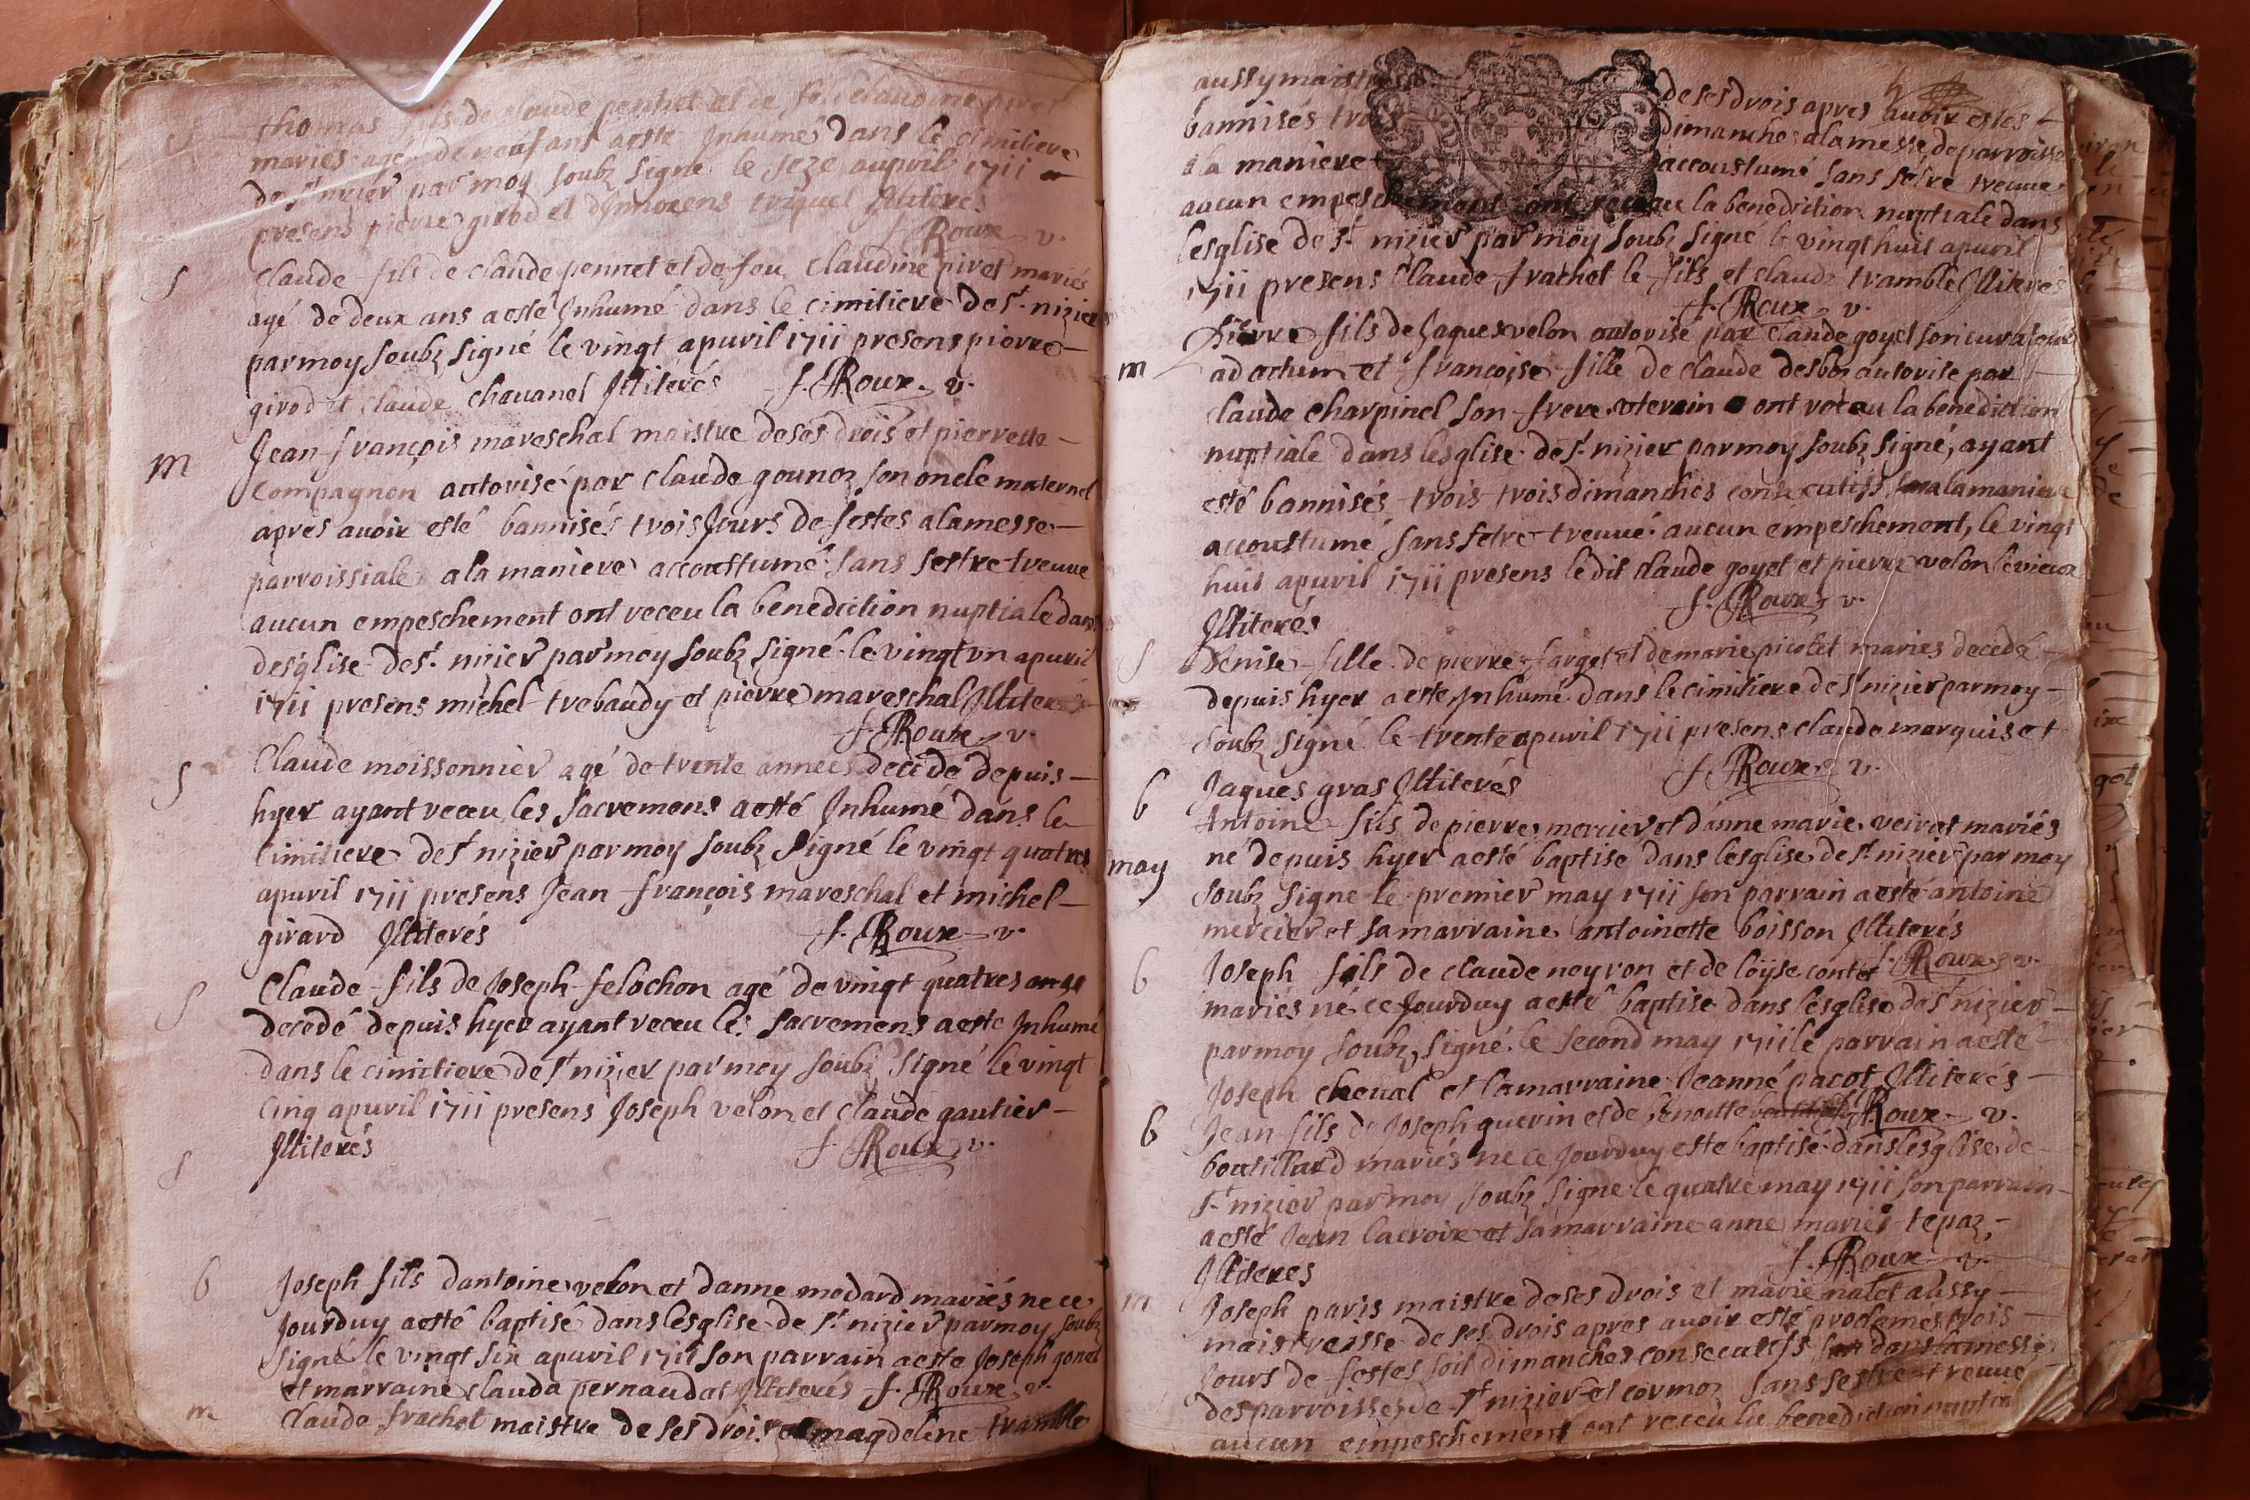 S
thomas fils de claude pennet et de feu claudine piret
mariés agé de neuf ans a esté Inhumé dans le cimitiere
de st nizier par moy soubz signé le seze apuril 1711
presens pierre girod et dymorens triquet Illiteres
f. Roux v.
S
Claude fils de claude pennet et de feu claudine piret mariés
agé de deux ans a esté Inhumé dans le cimitiere de st nizier
par moy soubz signé le vingt apuril 1711 presens pierre
girod et claude chavanel Illiterés f. Roux v.
m
Jean françois mareschal maistre de ses drois et pierrette
Compagnon autorisé par claude gounoz son oncle maternel
apres auoir esté bannisés trois Jours de festes a la messe
parroissiale a la maniere accoustumé sans sestre treuue
aucun empeschement ont receu la benediction nuptiale dans
lesglise de st nizier par moy soubz signé le vingt vn apuril
1711 presens michel trebaudy et pierre mareschal Illiterés
f. Roux v.
S
Claude moissonnier agé de trente années decede depuis
hyer ayant receu les sacremens a esté Inhumé dans le
cimitiere de st nizier par moy soubz signé le vingt quatres
apuril 1711 presens Jean françois mareschal et michel
girard Illiterés f. Roux v.
S
Claude fils de Joseph felochon agé de vingt quatres ans
decedé depuis hyer ayant receu les sacremens a este Inhumé
dans le cimitiere de st nizier par moy soubz signé le vingt
cinq apuril 1711 presens Joseph velon et claude gautier
Illiterés f. Roux v.
S
b
Joseph fils dantoine velon et danne modard mariés ne ce
Jourduy a esté baptisé dans lesglise de st nizier par moy soubz
signé le vingt six apuril 1711 son parrain a este Joseph gonet
et marraine clauda pernaudat Illiterés f. Roux v.
m
claude frachet maistre de ses drois et magdeleine tramble
aussy maistresse de ses drois apres auoir estes
bannisés trois dimanches a la messe de parroisse
a la maniere accoustumé sans sestre treuue
aucun empeschement ont receu la benediction nuptiale dans
lesglise de st nizier par moy soubz signé le vingt huit apuril
1711 presens claude frachet le fils et claude tramble Illiterés
f. Roux v.
m
Pierre fils de Jaques velon autorisé par claude goyet son curateur
ad actum et francoise fille de claude desboz autorise par
claude charpinel son frere vterain ont receu la benediction
nuptiale dans lesglise de st nizier par moy soubz signé, ayant
esté bannisés trois trois dimanches consecutifs a la maniere
accoustumé sans setre treuué aucun empeschement, le vingt
huit apuril 1711 presens le dit claude goyet et pierre velon le vieux
Illiterés f. Roux v.
S
Denise fille de pierre farget et de marie picolet mariés decedé
depuis hyer a este Inhumé dans le cimitiere de st nizier par moy
soubz signé le trente apuril 1711 presens claude marquis et
Jaques gras Illiterés f. Roux v.
b
Antoine fils de pierre mercier et danne marie veiret mariés
may
né depuis hyer a esté baptise dans lesglise de st nizier par moy
soubz signe le premier may 1711 son parrain a esté antoine
mercier et sa marraine antoinette boisson Illiterés
f. Roux v.
b
Joseph fils de claude neyron et de loÿse contet
mariés né ce Jourduy a esté baptise dans lesglise de st nizier
par moy soubz signé le second may 1711 le parrain a esté
Joseph cheual et la marraine Jeanne pacot Illiterés
f. Roux v.
b
Jean fils de Joseph guerin et de benoitte
boutillard mariés ne ce Jourduy este baptisé dans lesglise de
st nizier par moy soubz signe le quatre may 1711 son parrain
a esté Jean lacroix et sa marraine anne mariés tepaz
Illiteres f. Roux v.
m
Joseph paris maistre de ses drois et marie nalet aussy
maistresse de ses drois apres auoir esté proclamés trois
Jours de festes soit dimanches consecutifs dans la messe
des parroisses de st nizier et cormoz sans sestre treuue
aucun empeschement ont receu la benediction nuptiale